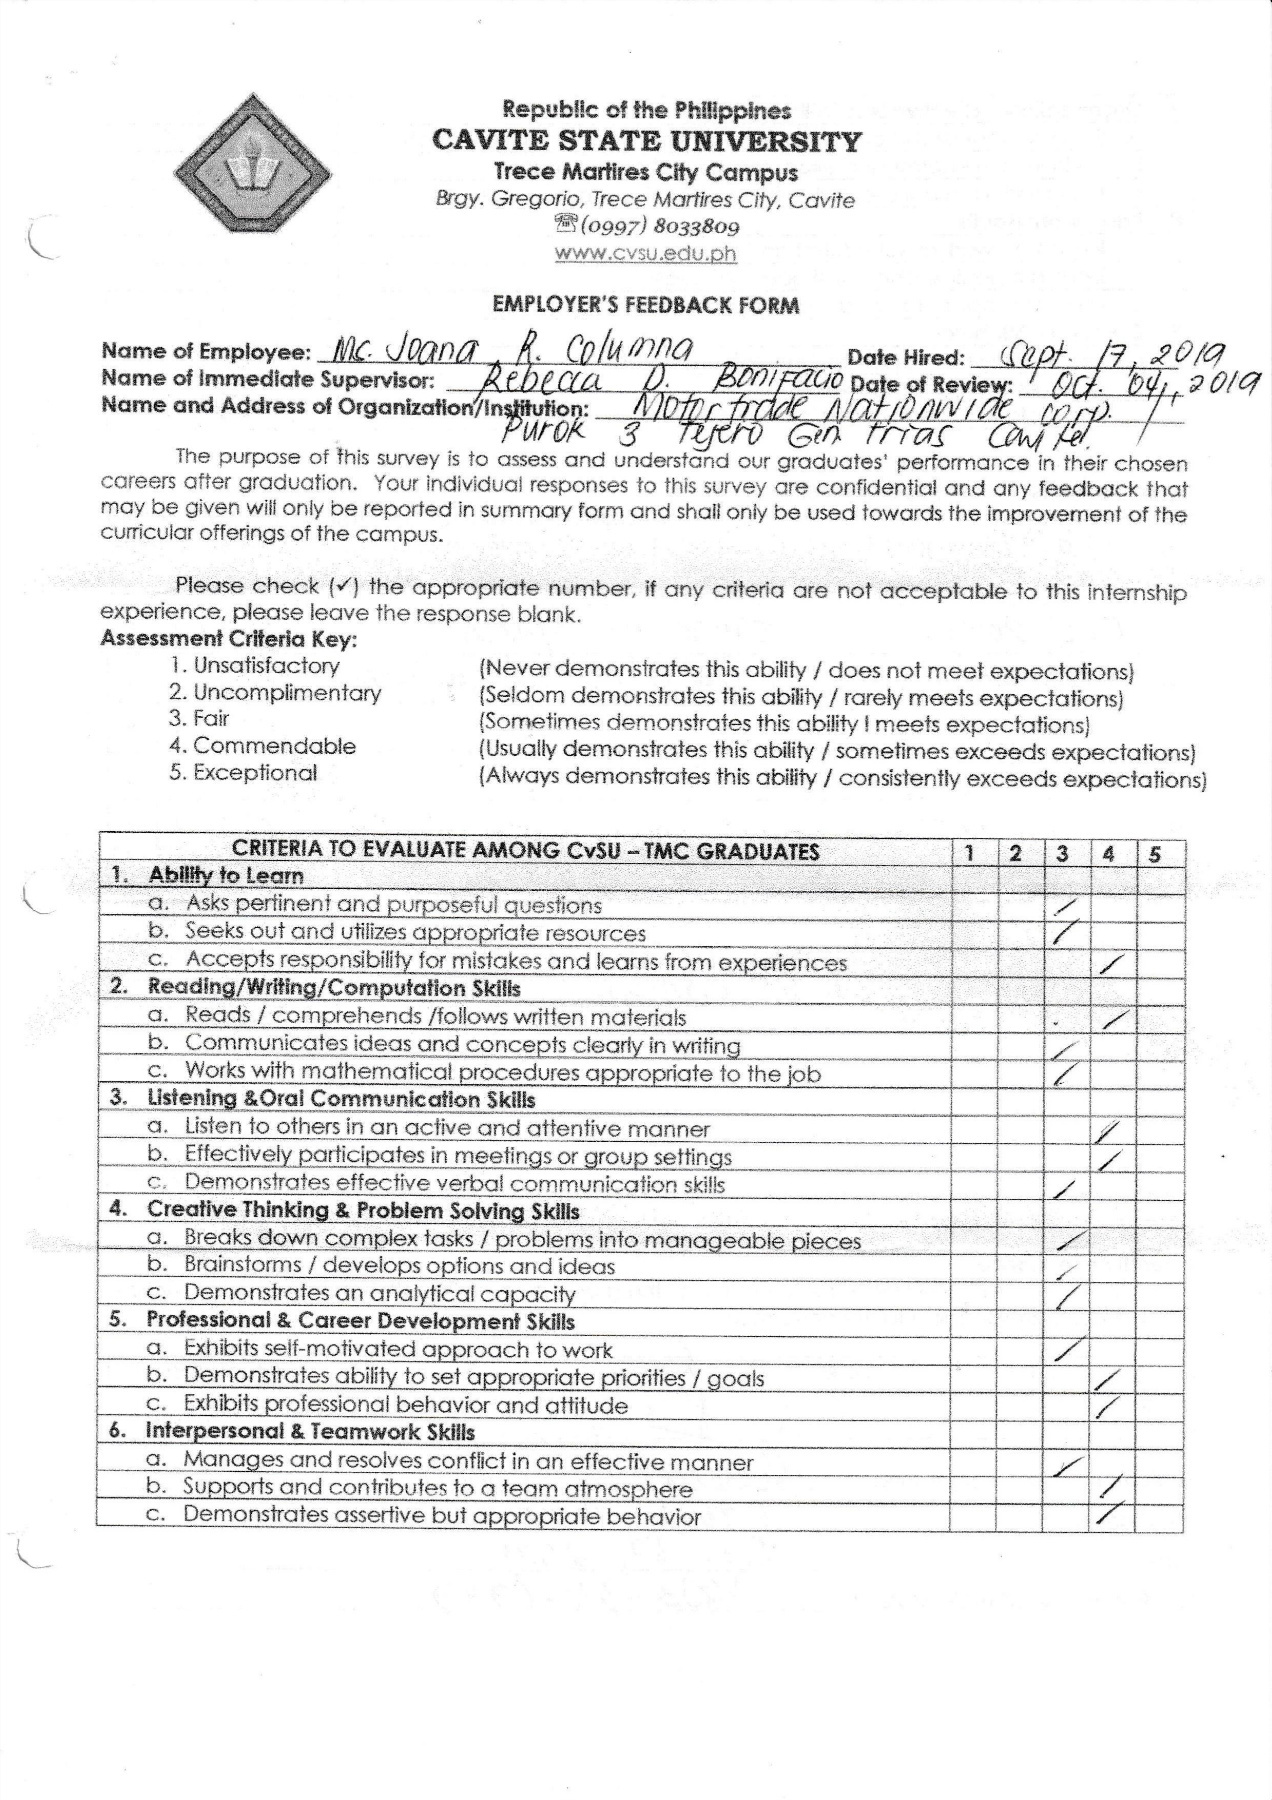 Republic of the Philippines
CAVITE STATE UNIVERSITY
Trece Martires City Campus
Brgy. Gregorio, Trece Martires City, Cavite
☏(0997) 8033809
www.cvsu.edu.ph
EMPLOYER'S FEEDBACK FORM
Name of Employee: Mc. Joana R. Columna Date Hired: Sept. 17, 2019
Name of Immediate Supervisor: Rebecca D. Bonifacio Date of Review: Oct. 04, 2019
Name and Address of Organization/Institution: Motortrade Nationwide Corp.
Purok 3 Tejero Gen. Trias Cavite.
The purpose of this survey is to assess and understand our graduates' performance in their chosen
careers after graduation. Your individual responses to this survey are confidential and any feedback that
may be given will only be reported in summary form and shall only be used towards the improvement of the
curricular offerings of the campus.
Please check (✓) the appropriate number, if any criteria are not acceptable to this internship
experience, please leave the response blank.
Assessment Criteria Key:
1. Unsatisfactory (Never demonstrates this ability / does not meet expectations)
2. Uncomplimentary (Seldom demonstrates this ability / rarely meets expectations)
3. Fair (Sometimes demonstrates this ability I meets expectations)
4. Commendable (Usually demonstrates this ability / sometimes exceeds expectations)
5. Exceptional (Always demonstrates this ability / consistently exceeds expectations)
CRITERIA TO EVALUATE AMONG CvSU – TMC GRADUATES 1 2 3 4 5
1. Ability to Learn
a. Asks pertinent and purposeful questions /
b. Seeks out and utilizes appropriate resources /
c. Accepts responsibility for mistakes and learns from experiences /
2. Reading/Writing/Computation Skills
a. Reads / comprehends /follows written materials /
b. Communicates ideas and concepts clearly in writing /
c. Works with mathematical procedures appropriate to the job /
3. Listening &Oral Communication Skills
a. Listen to others in an active and attentive manner /
b. Effectively participates in meetings or group settings /
c. Demonstrates effective verbal communication skills /
4. Creative Thinking & Problem Solving Skills
a. Breaks down complex tasks / problems into manageable pieces /
b. Brainstorms / develops options and ideas /
c. Demonstrates an analytical capacity /
5. Professional & Career Development Skills
a. Exhibits self-motivated approach to work /
b. Demonstrates ability to set appropriate priorities / goals /
c. Exhibits professional behavior and attitude /
6. Interpersonal & Teamwork Skills
a. Manages and resolves conflict in an effective manner /
b. Supports and contributes to a team atmosphere /
c. Demonstrates assertive but appropriate behavior /